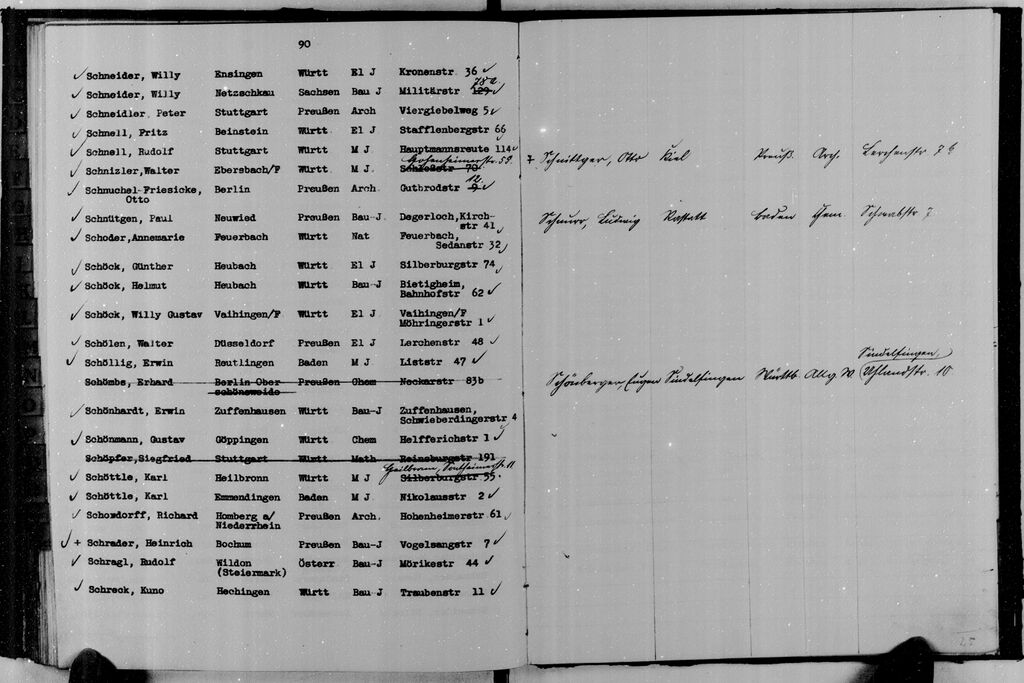 90
Schneider, Willy Ensingen Württ El J Kronenstr 36
78a
Schneider, Willy Netzschkau Sachsen Bau J Militärstr 129
Schneidler Peter Stuttgart Preußen Arch Viergiebelweg 5
Schnell, Fritz Beinstein Württ El J Stafflenbergstr 66
Schnell, Rudolf Stuttgart Württ M J Hauptmannsreute 114
Hohenheimerstr. 59.
Schnizler,Walter Ebersbach/F Württ M J Schloßstr 70
12.
Schnuchel-Friesicke, Berlin Preußen Arch. Gutbrodstr 9
Otto
Schnütgen, Paul Neuwied Preußen Bau-J Degerloch,Kirch-
str 41
Schoder,Annemarie Feuerbach Württ Nat Feuerbach,
Sedanstr 32
Schöck, Günther Heubach Württ El J Silberburgstr 74
Schöck, Helmut Heubach Württ Bau-J Bietigheim,
Bahnhofstr 62
Schöck, Willy Gustav Vaihingen/F Württ El J Vaihingen/F
Möhringerstr 1
Schölen, Walter Düsseldorf Preußen El J Lerchenstr 48
Schöllig, Erwin Reutlingen Baden M J Liststr 47
Schömbs, Erhard Berlin-Ober Preußen Chem Neckarstr 83b
schönsweide
Schönhardt, Erwin Zuffenhausen Württ Bau-J Zuffenhausen,
Schwieberdingerstr 4
Schönmann, Gustav Göppingen Württ Chem Helfferichstr 1
Schöpfer,Siegfried Stuttgart Württ Math Reinsburgstr 191
Heilbronn, Sontheimerstr. 11
Schöttle, Karl Heilbronn Württ M J Silberburgstr 55.
Schöttle, Karl Emmendingen Baden M J Nikolausstr 2
Schondorff, Richard Homberg a/ Preußen Arch. Hohenheimerstr 61
Niederrhein
+ Schrader, Heinrich Bochum Preußen Bau-J Vogelsangstr 7
Schragl, Rudolf Wildon Österr Bau-J Mörikestr 44
(Steiermark)
Schreck, Kuno Hechingen Württ Bau J Traubenstr 11
+ Schnittger, Otto Kiel Preuß. Arch. Lerchenstr 7b
Schnurr, Ludwig Rastatt Baden Chem. Schwabstr 7
Sindelfingen,
Schönberger, Eugen Sindelfingen Württb. Allg. W. Uhlandstr. 10